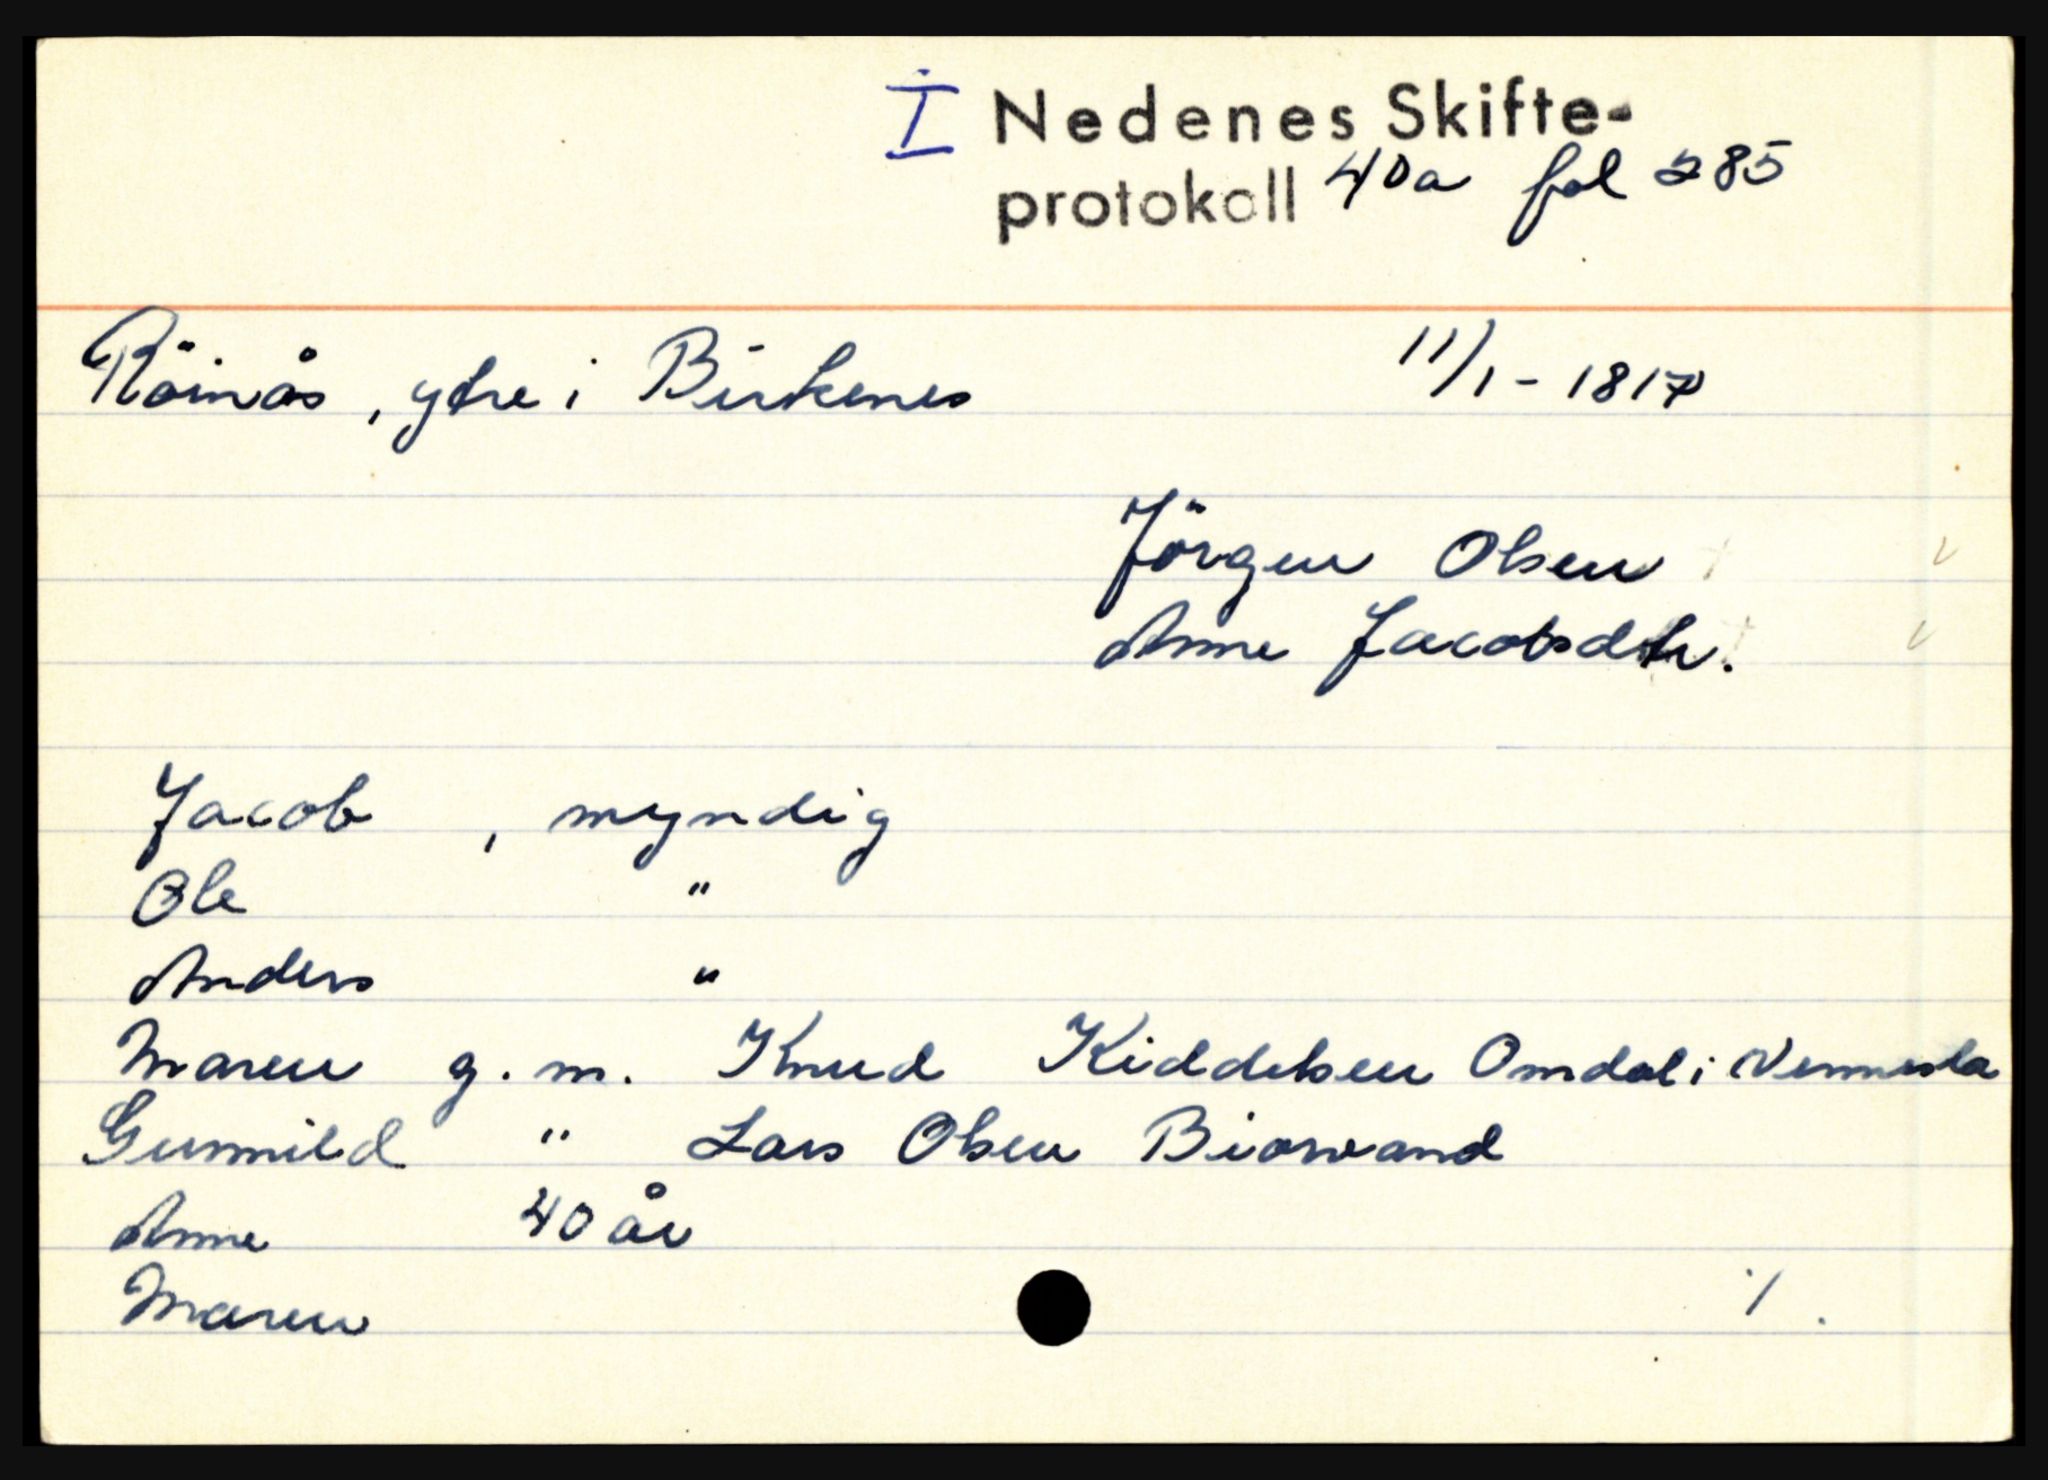 I Nedenes Skifte-
protokoll 40a fol 285
Röinås, ytre i Birkenes 11/1-1817
Jörgen Olsen
Anne Jacobsdtr.
Jacob, myndig
Ole "
Anders "
Maren g.m. Knud Kiddelsen Omdal i Vennesla
Gunnild " Lars Olsen Biorvand
Anne 40 år
Maren